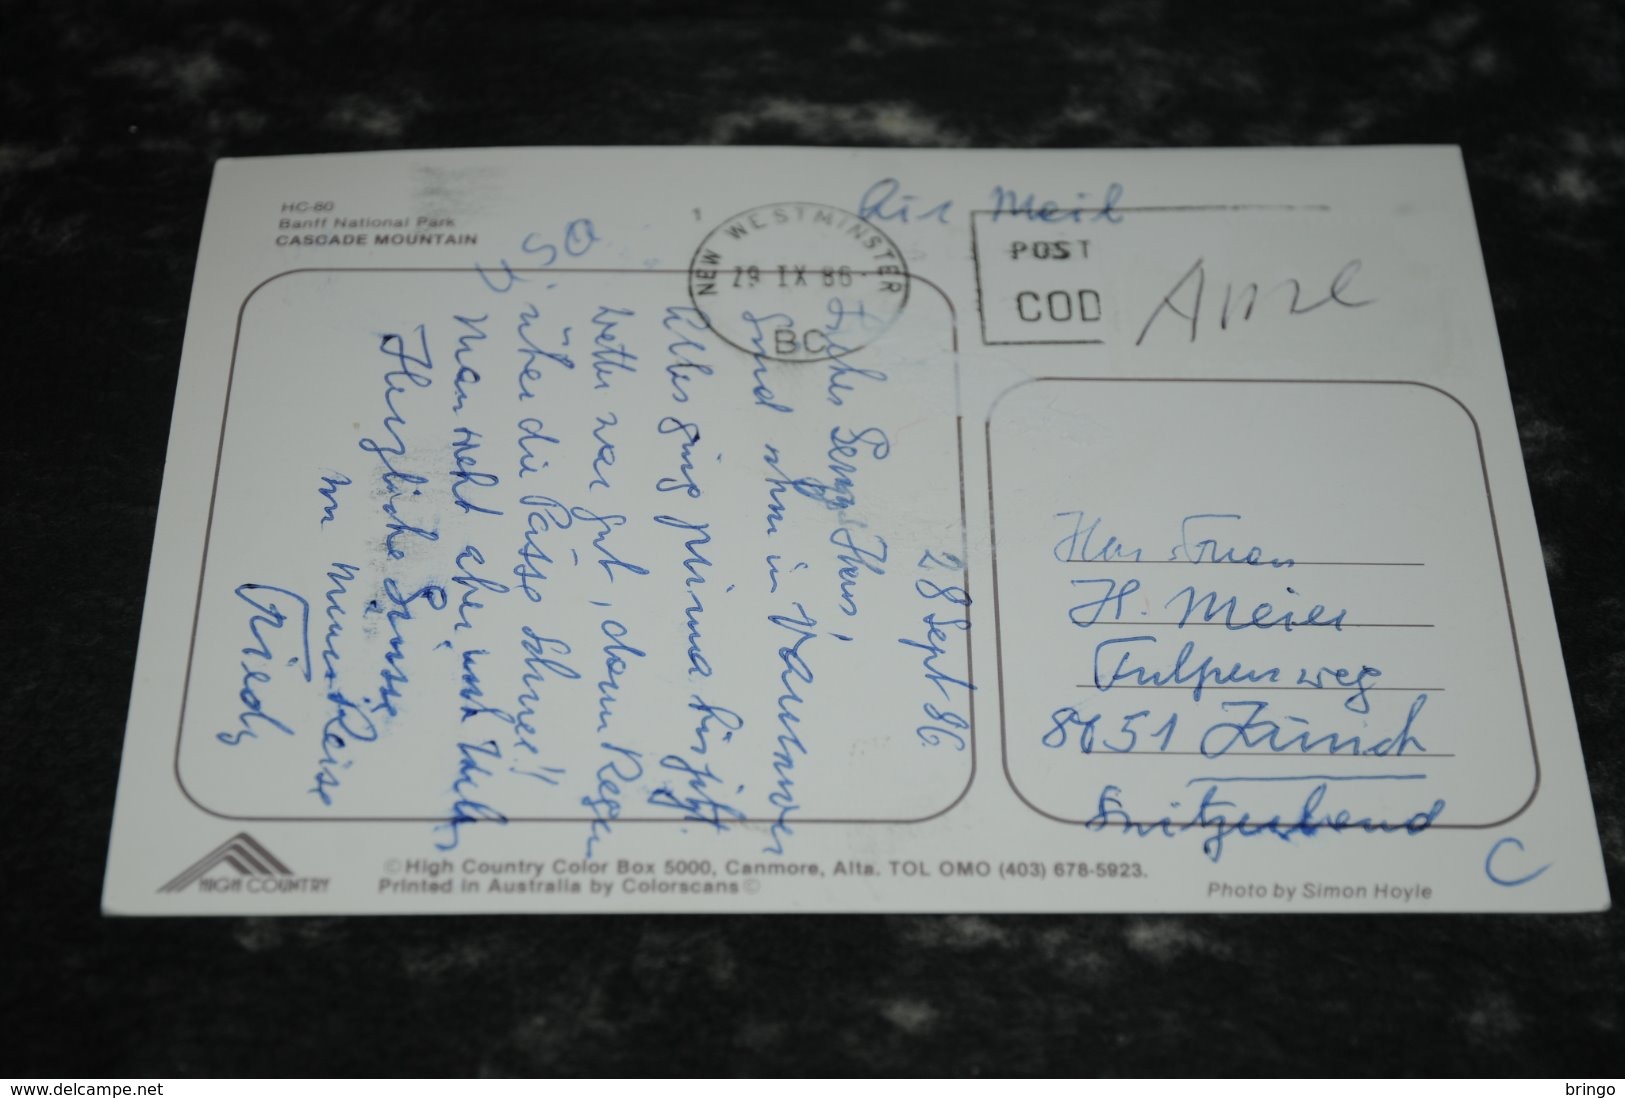 HC-80
Banff National Park
CASCADE MOUNTAIN
1
NEW WESTMINSTER
29 IX 86
BC
Air Meil
POST
COD
28 Sept 86.
sind in Vancouver
Alles ging prima bis jetzt.
Wetter war gut, dann Regen
über die Pässe Schnee!!
Man sieht aber
Herzliche Grüsse
von Reise
Friedy
H. Meier
Tulpenweg
8051 Zürich
Switzerland
C
HIGH COUNTRY
©High Country Color Box 5000, Canmore, Alta. TOL OMO (403) 678-5923.
Printed in Australia by Colorscans©
Photo by Simon Hoyle
www.delcampe.net
bringo